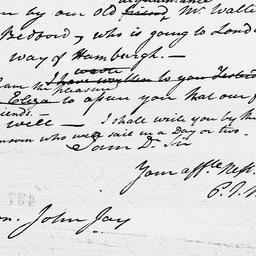 acquaintance
by our old friend, Mr. Walte
Bedford, who is going to Lond
way of Hamburgh. —
wrote
I have written to you
the pleasure
Eliza to assure you that our f
friends. —
well — I shall write you by th
who will sail in a day or two.
I am D. Sir
Your affte. Neph.
P. J.
on. John Jay